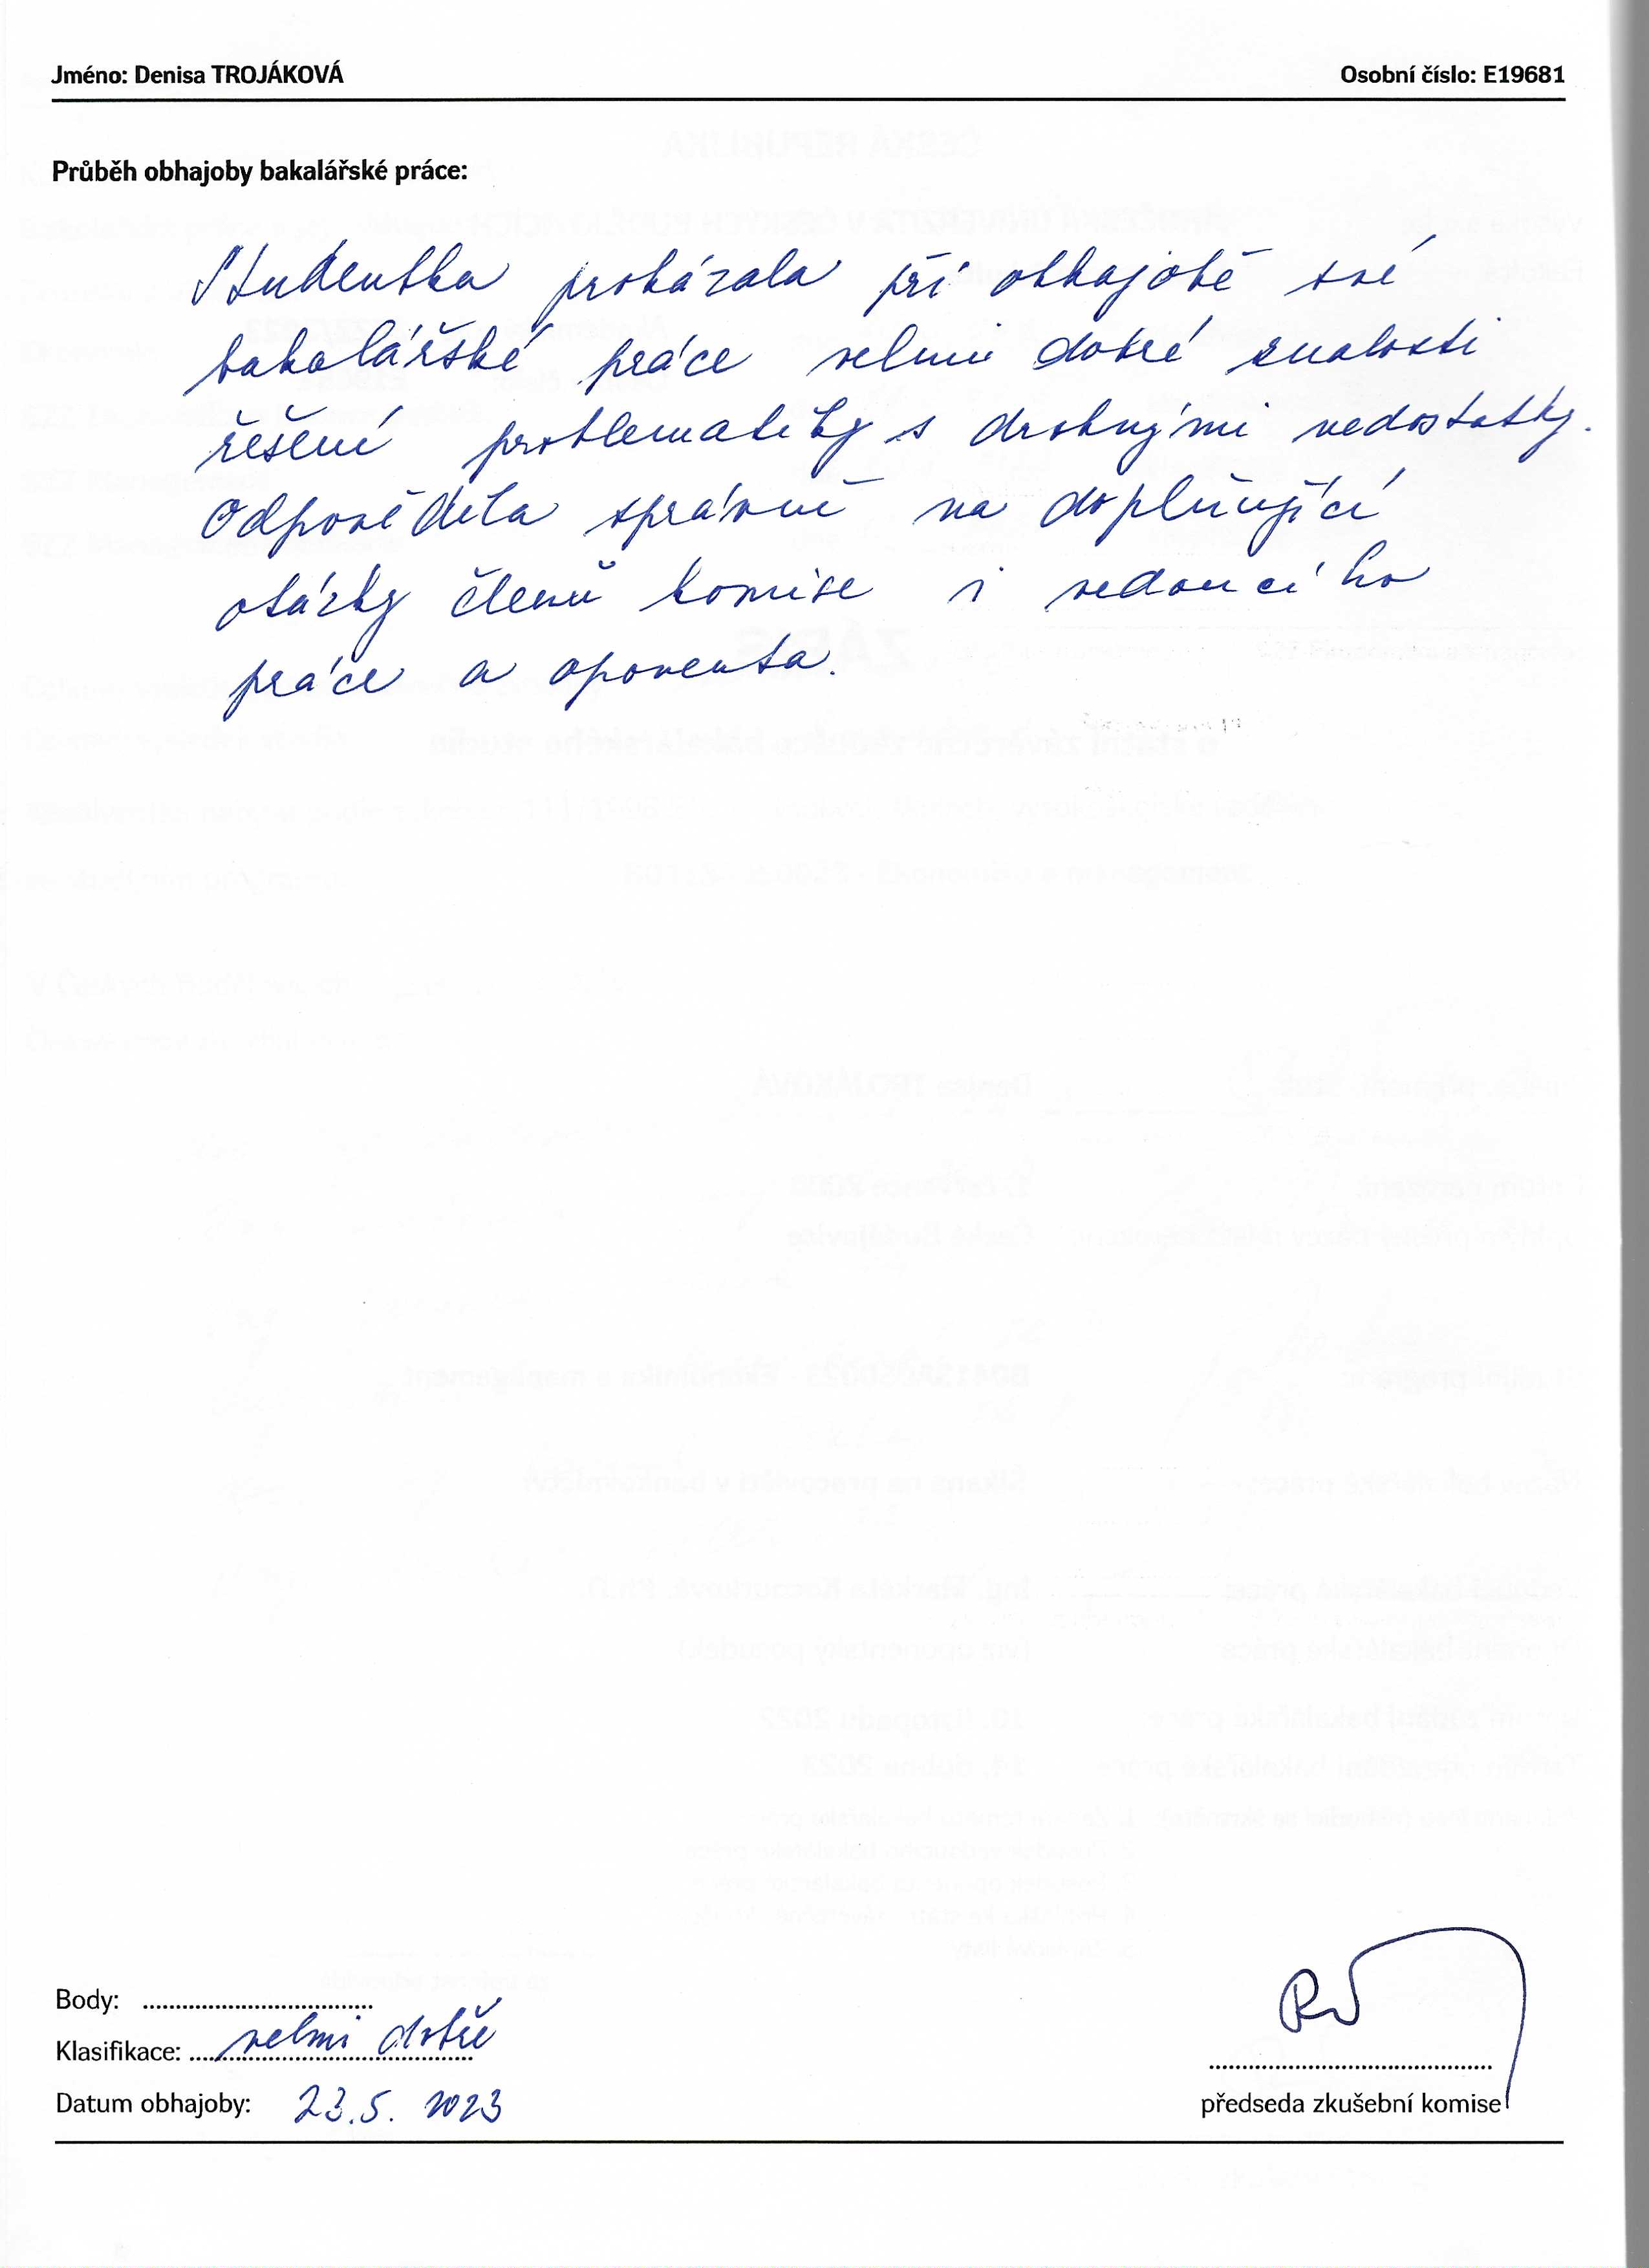 Jméno: Denisa TROJÁKOVÁ Osobní číslo: E19681
Průběh obhajoby bakalářské práce:
Studentka prokázala při obhajobě své
bakalářské práce velmi dobré znalosti
řešení problematiky s drobnými nedostatky.
Odpověděla správně na doplňující
otázky členů komise i vedoucího
práce a oponenta.
Body: ....................................
Klasifikace: velmi dobře
Datum obhajoby: 23.5. 2023
předseda zkušební komise